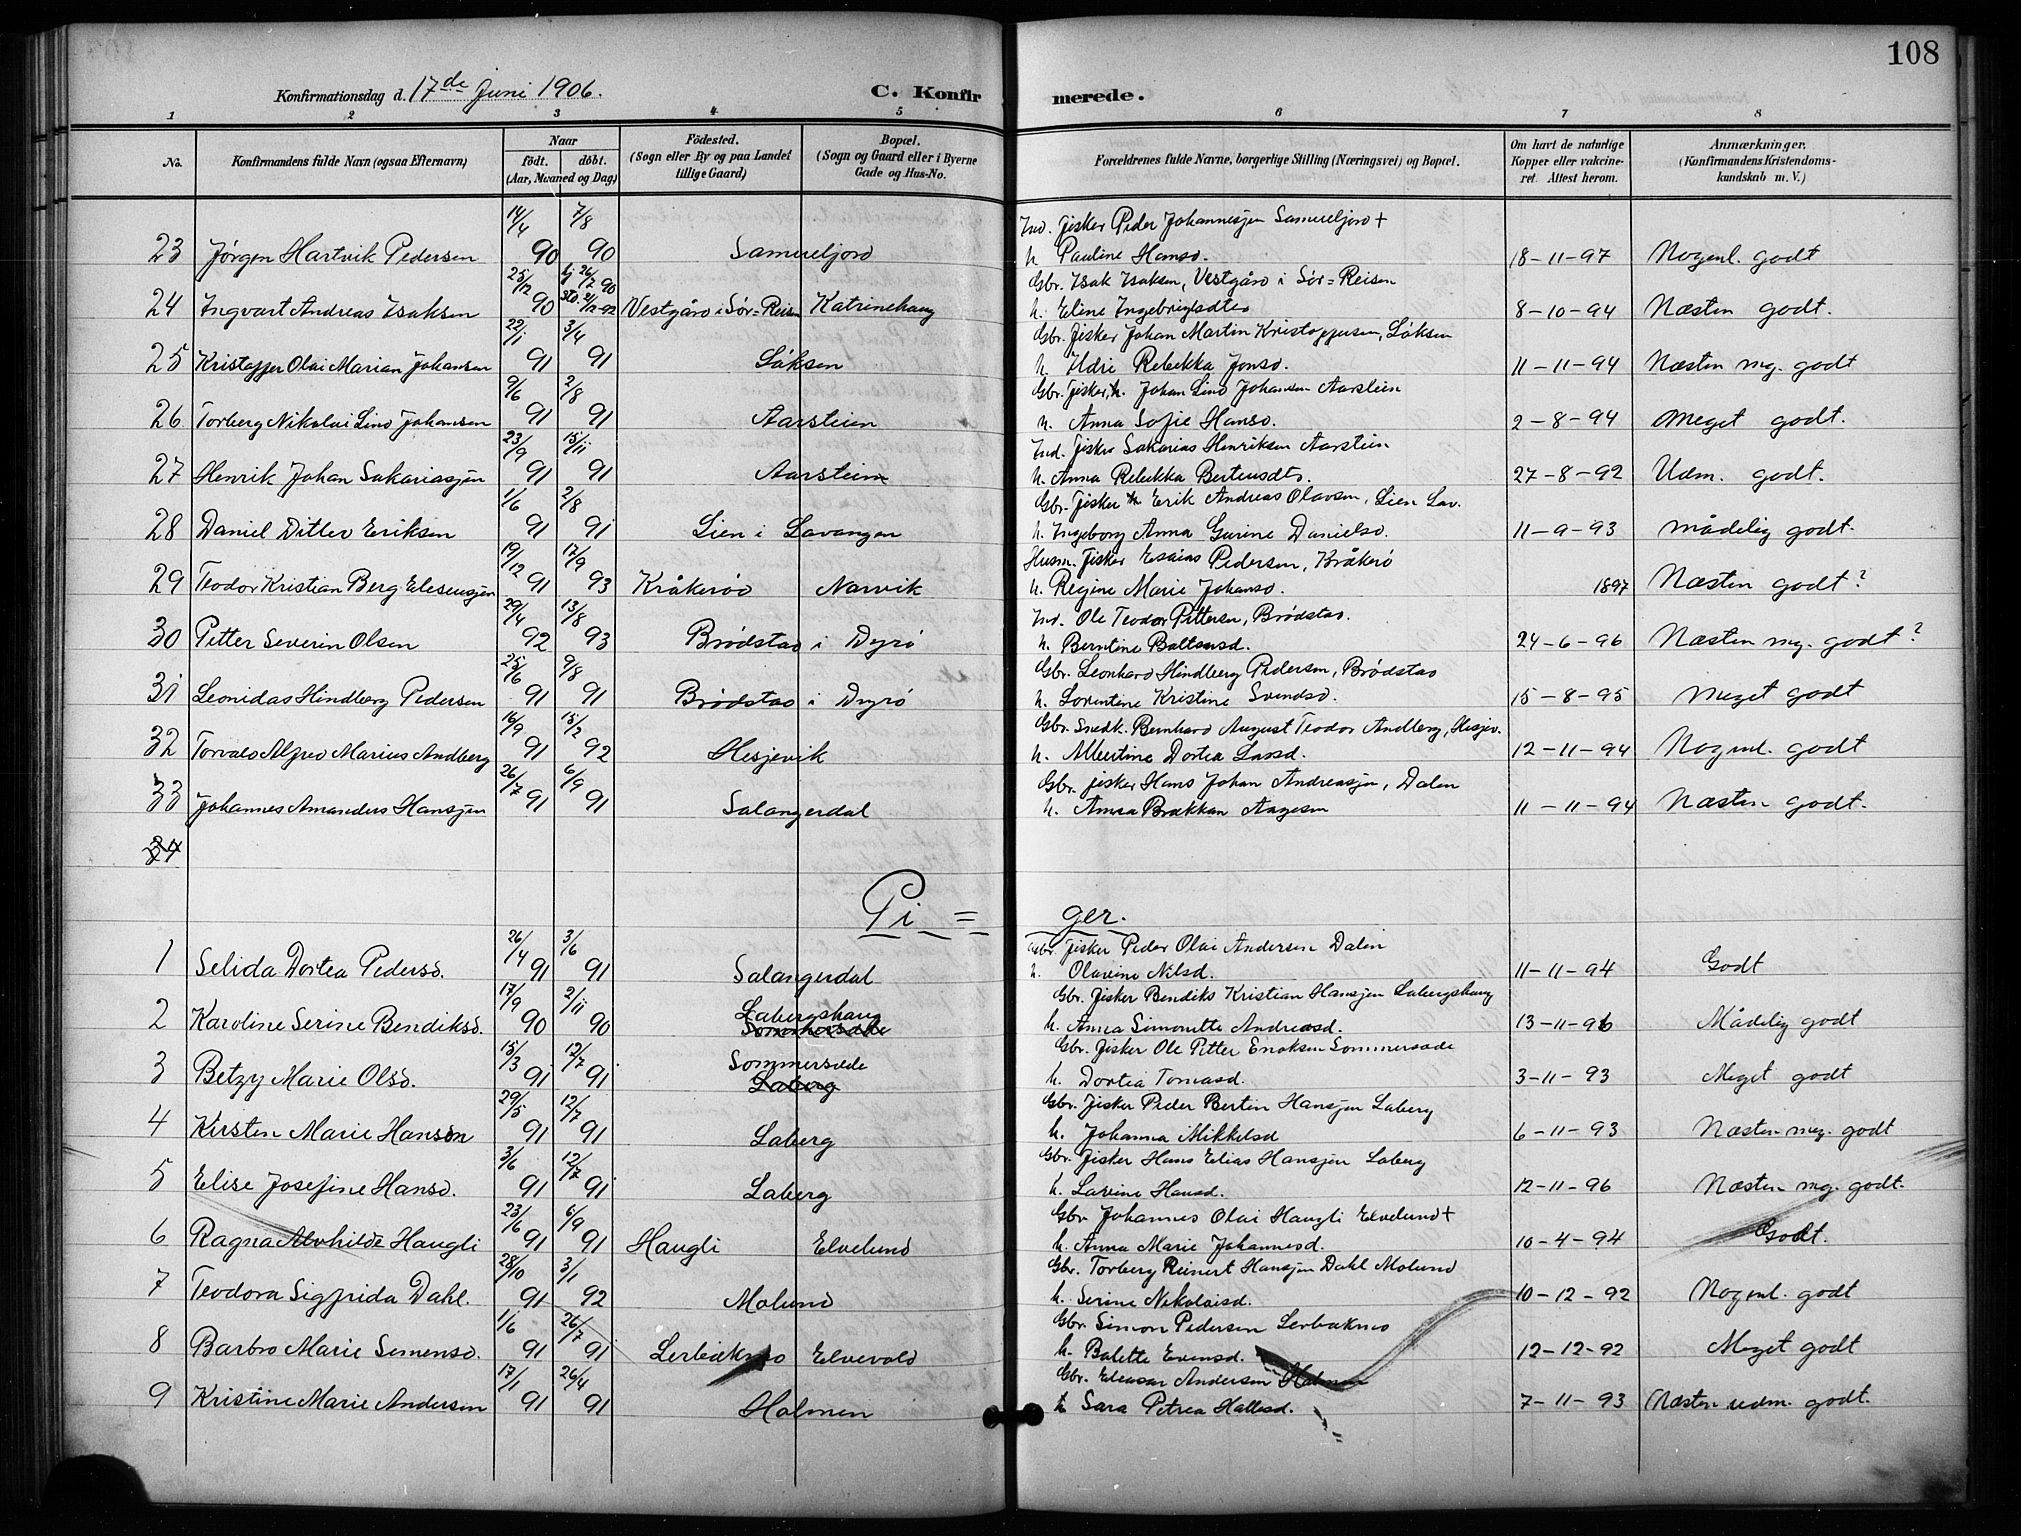 108
Konfirmationsdag d. 17de Juni 1906. C. Konfir merede.
1 2 3 4 5 6 7 8
No. Konfirmandens fulde Navn (ogsaa Efternavn) Naar födt. döbt. (Aar, Maaned og Dag) Födested. (Sogn eller By og paa Landet tillige Gaard) Bopæl. (Sogn og Gaard eller i Byerne Gade og Hus-No. Forældrenes fulde Navne, borgerlige Stilling (Næringsvei) og Bopæl. Om havt de naturlige Kopper eller vakcineret. Attest herom. Anmærkninger. (Konfirmandens Kristendomskundskab m. V.)
14/4 7/8 Ind. fisker Peder Johannesen Samueljord +
23 Jørgen Hartvik Pedersen 90 90 Samueljord h. Pauline Hansd. 18-11-97 Nogenl. godt
25/12 26/7 90 Gbr. Isak Isaksen, Vestgård i Sør-Reisen
24 Ingvart Andreas Isaksen 90 Vestgård i Sør-Reisen Katrinehaug h. Eline Ingebrigtsdtr 8-10-94 Næsten godt.
22/1 3/4 Gbr. fisker Johan Martin Kristoffersen, Løksen
25 Kristoffer Olai Marian Johansen 91 91 Løksen h. Rebekka Jonsd. 11-11-94 Næsten mg. godt
9/6 2/8 Gbr. fisker, h. Johan Lind Johansen Aarstein
26 Torberg Nikolai Lind Johansen 91 91 Aarstein h. Anna Sofie Hansd. 2-8-94 Meget godt.
23/9 15/11 Ind. fisker Sakarias Henriksen Aarstein
27 Henrik Johan Sakariassen 91 91 Aarstein h. Anna Rebekka Berteusdtr. 27-8-92 Udm. godt.
1/6 2/8 Gbr. fisker Erik Andreas Olavsen, Lien Lav.
28 Daniel Ditlev Eriksen 91 91 Lien i Lavangen h. Ingeborg Anna Gurine Danielsd. 11-9-93 Mådelig godt.
19/12 17/9 Husm. fisker Esaias Pedersen, Kråkerø
29 Teodor Kristian Berg Elesenssen 91 93 Kråkerød Narvik h. Regine Marie Johansd. 1897 Næsten godt?
29/4 13/8 Ind. Ole Teodor Pettersen, Brødstad.
30 Petter Severin Olsen 92 93 Brødstad i Dyrø h. Berntine Baltsersd. 24-6-96 Næsten mg. godt?
25/6 9/8 Gbr. Leonhard Hindberg Pedersen, Brødstad
31 Leonidas Hindberg Pedersen 91 91 Brødstad i Dyrø h. Lorentene Kristine Svendsd. 15-8-95 Meget godt
16/9 15/2 Gbr. Snedk. Bernhard August Teodor Andberg, Hesjev.
32 Torvald Alfred Marius Andberg 91 92 Hesjevik h. Albertine Dortea Larsd. 12-11-94 Nogenl. godt
26/7 6/9 Gbr. fisker Hans Johan Andreassen, Dalen
33 Johannes Amandus Hanssen 91 91 Salangerdal h. Anna Brakkan Aagesen 11-11-94 Næsten godt.
34
Pi = ger.
26/4 3/6 Gbr. fisker Peder Olai Andersen Dalen
1 Selida Dortea Pedersd. 91 91 Salangerdal h. Olavine Nilsd. 11-11-94 Godt
17/9 2/11 Gbr. fisker Bendiks Kristian Hanssen Labergshaug
2 Karoline Serine Bendiksd. 90 90 Labergshaug Sommersæde h. Anna Simonette Andreasd. 13-11-96 Mådelig godt
15/3 12/7 Gbr. fisker Ole Petter Enoksen Sommersæde
3 Betzy Marie Olsd. 91 91 Sommersæde Laberg h. Dortea Tomasd. 3-11-93 Meget godt
29/5 12/7 Gbr. fisker Peder Bertin Hanssen Laberg
4 Kirsten Marie Hansen 91 91 Laberg h. Johanna Mikkelsd 6-11-93 Næsten meg. godt
3/6 12/7 Gbr. fisker Hans Elias Hanssen Laberg
5 Elise Josefine Hansd. 91 91 Laberg h. Lavine Hansd. 12-11-96 Næsten mg. godt.
23/6 6/9 Gbr. Johannes Olai Haugli Elvelund +
6 Ragna Alvhilda Haugli 91 91 Haugli Elvelund h. Anna Marie Johannesd. 10-4-94 Godt.
28/10 3/1 Gbr. Torberg Reinert Hanssen Dahl Molund
7 Teodora Sigfrida Dahl. 91 92 Molund h. Serine Nikolaisd. 10-12-92 Nogenl. godt
1/6 26/7 Gbr. Simon Pedersen Lerbæknes
8 Barbro Marie Simensd. 91 91 Lerbæknes Elvevold h. Balette Evensd. 12-12-92 Meget godt
17/1 26/4 Gbr. Eleasar Andersen Holmen
9 Kristine Marie Andersen 91 91 Holmen h Sara Petrea Hallesd. 7-11-93 Næsten udm. godt.